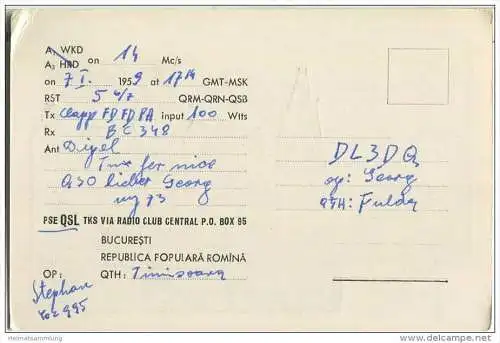 A₁ WKD
A₃ HRD on 14 Mc/s
on 7 I. 1959 at 17 14 GMT-MSK
RST 5 6/7 QRM-QRN-QSB
Tx Clapp FD FD PA input 100 Wtts
Rx BC 348
Ant Dipol
Tnx fer nice
QSO lieber Georg
vy 73
PSE QSL TKS VIA RADIO CLUB CENTRAL P. O. BOX 95
BUCUREȘTI
REPUBLICA POPULARĂ ROMÎNĂ
OP: QTH: Timisoara
Stephan
Yo2995
DL3DQ
op: Georg
QTH: Fulda
Heimatsammlung
www.delcampe.net